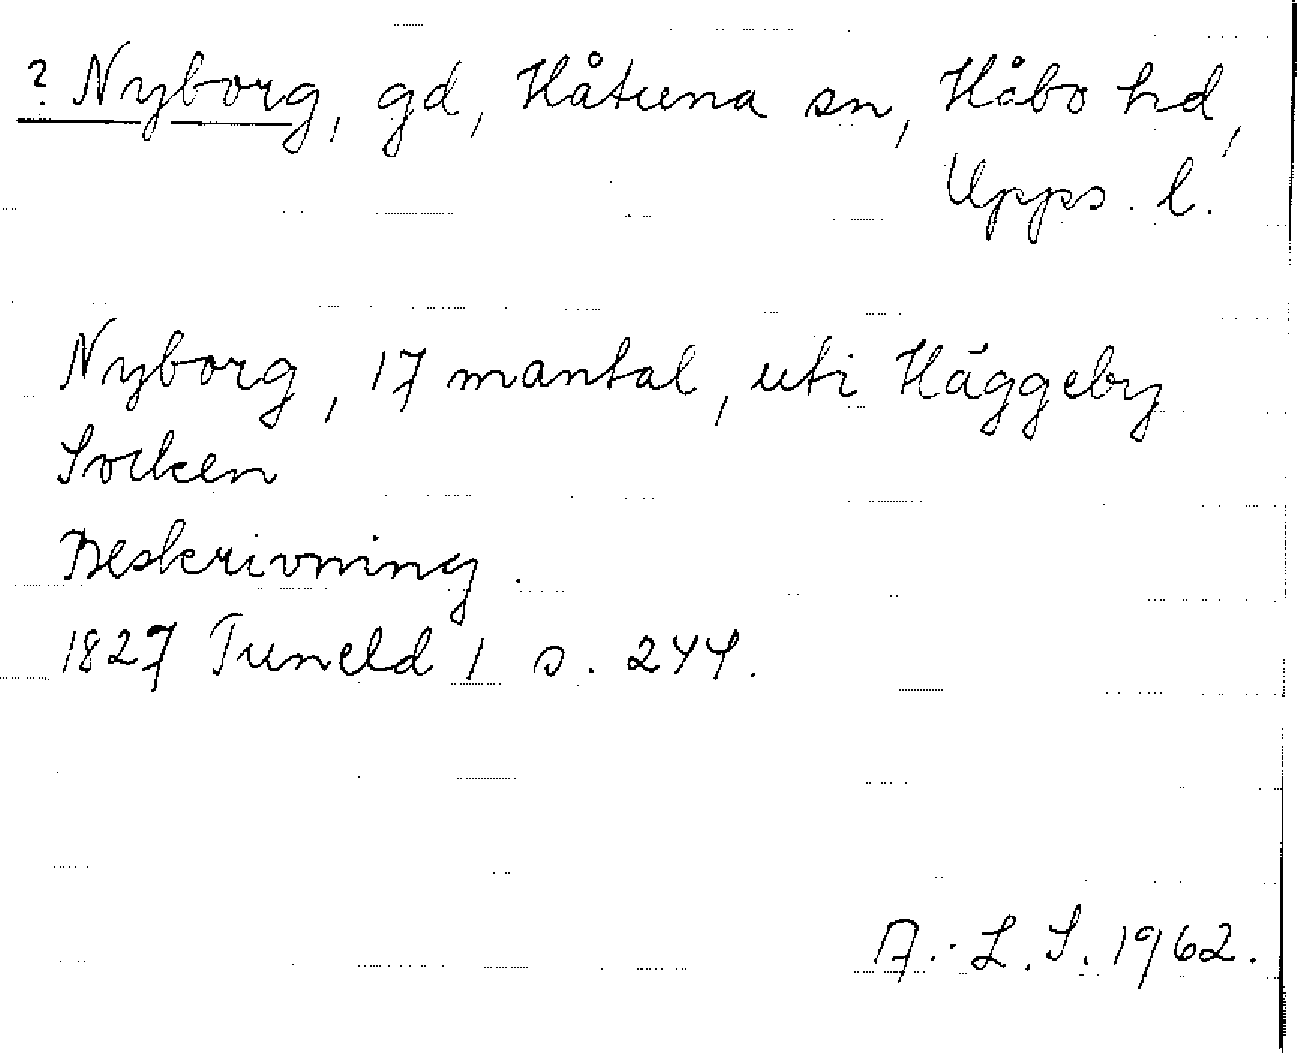 ? Nyborg, gd, Håtuna sn, Håbo hd,
Upps. l.
Nyborg, 17 mantal, uti Häggeby
Socken
Beskrivning.
1827 Tuneld 1 s. 244.
A.-L.S. 1962.